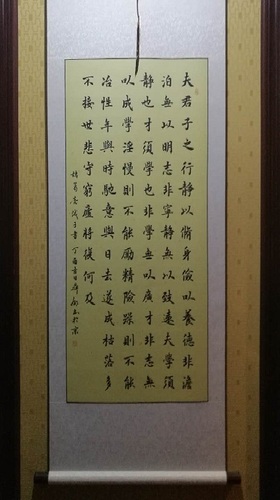 夫君子之行靜以脩身儉以養德非澹
泊無以明志非寧靜無以致遠夫學須
靜也才須學也非學無以廣才非志無
以成學淫慢則不能勵精險躁則不能
冶性年與時馳意與日去遂成枯落多
不接世悲守窮廬將復何及
諸葛亮誡子書 丁酉 於京